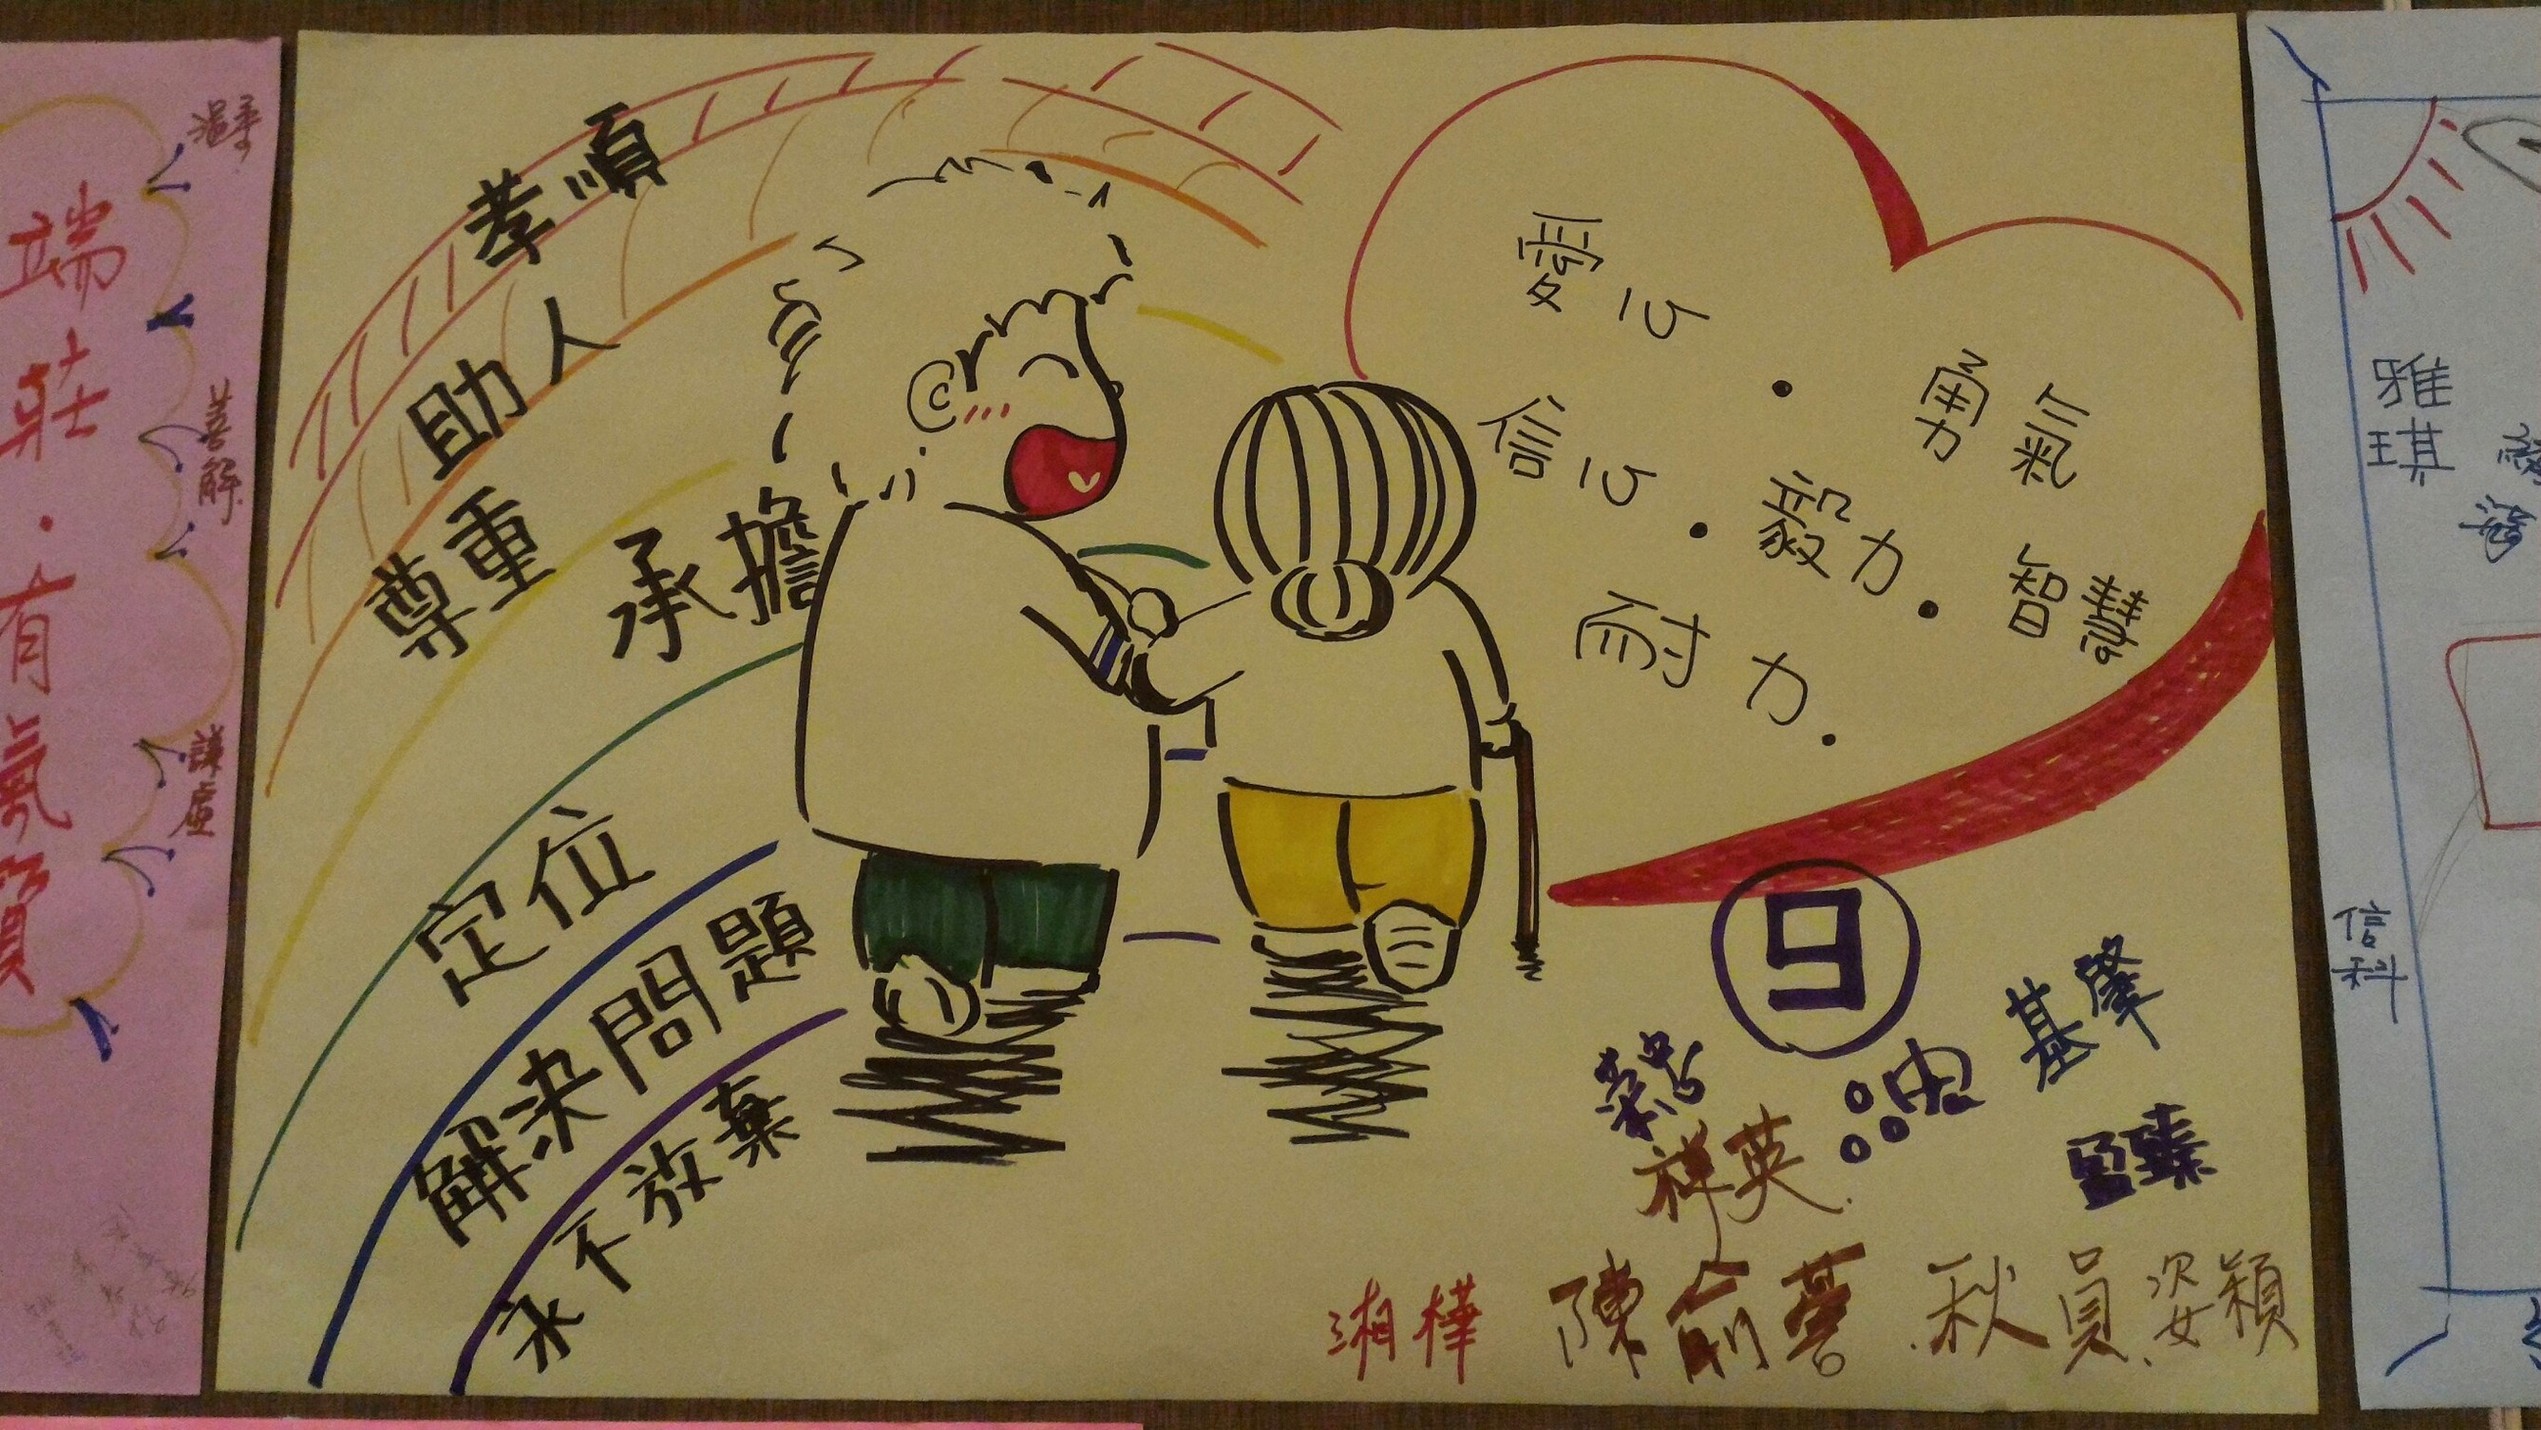 溫柔
善解
謙虛
端莊·有氣質
孝順
助人
尊重 承擔
定位
解決問題
永不放棄
愛心·勇氣
信心·毅力·智慧
耐力.
9
基肇
祥英.
湘樺 陳俞蒼 .秋員.姿穎
雅琪
信科